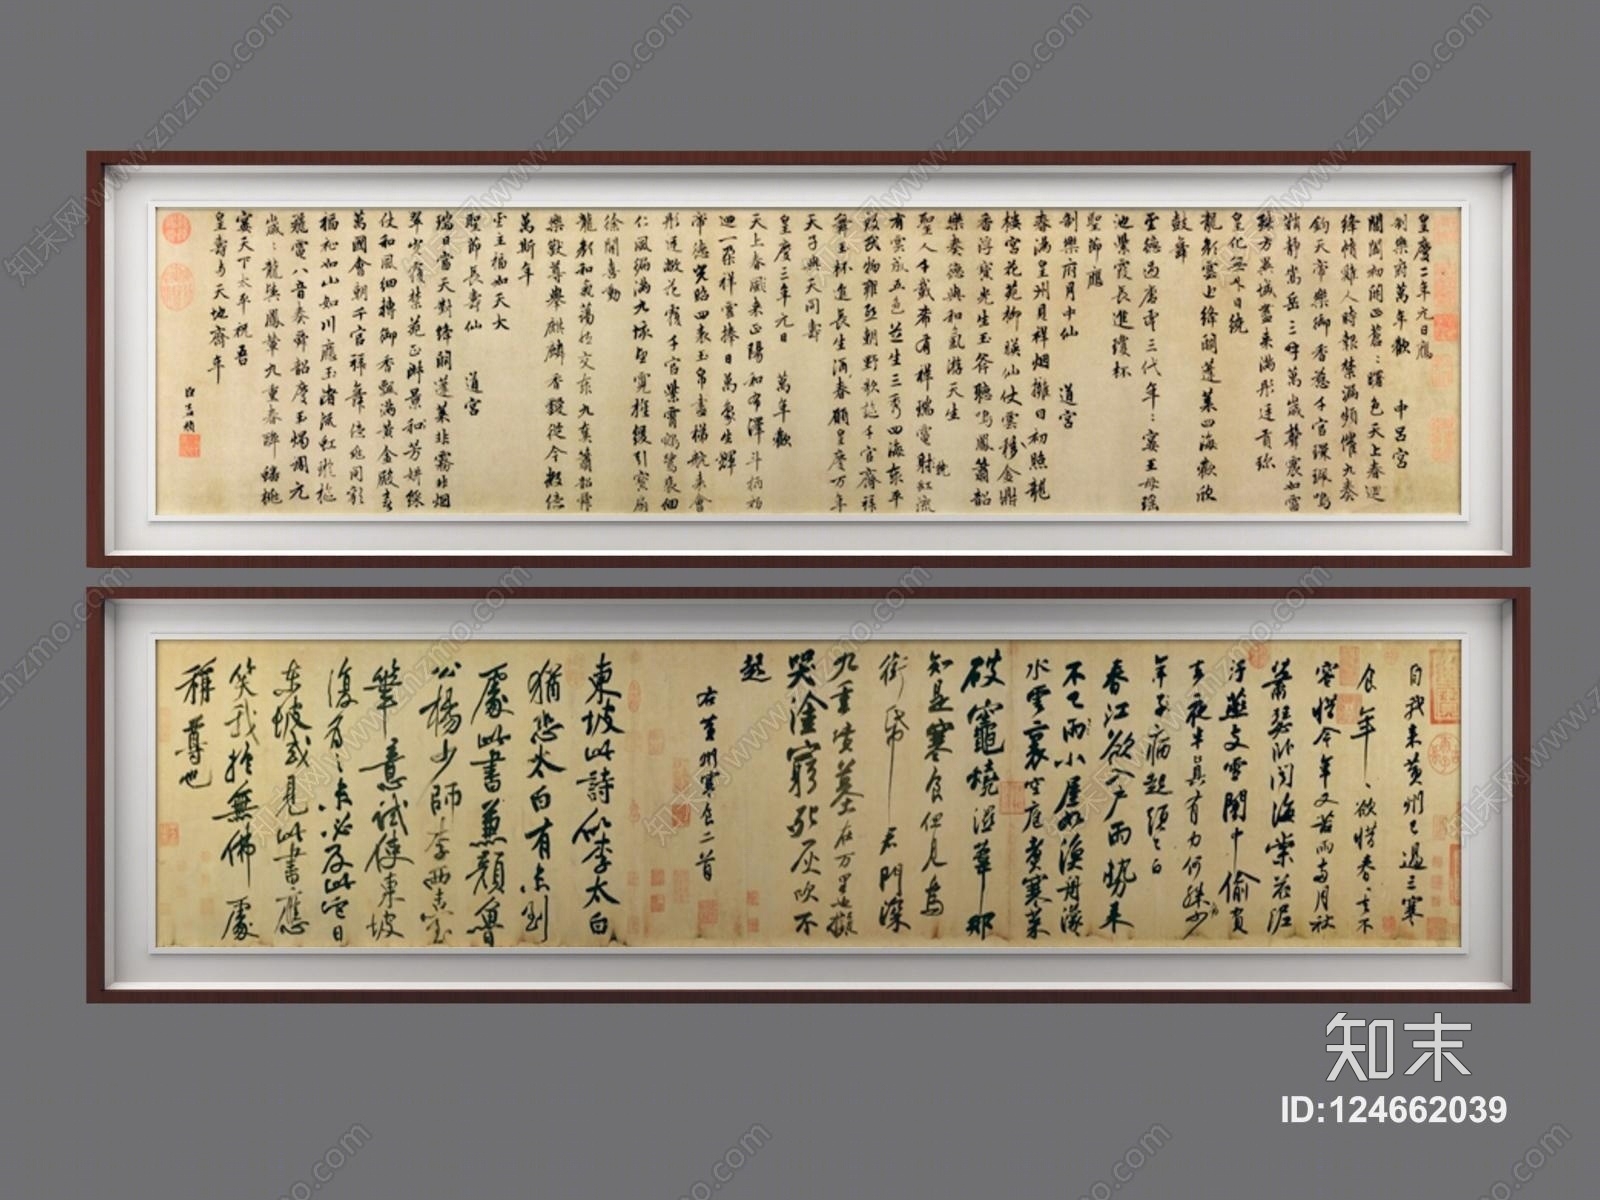 皇慶二年元日應
制樂府萬年歡　中呂宮
閶闔初開正蒼蒼曙色天上春迴
絳幘雞人時報禁漏頻催九奏
鈞天帝樂御香惹千官環珮鳴
鞘靜嵩岳三呼萬歲聲震如雷
殊方異域盡來滿彤廷貢珍
皇化無外日繞
龍影雲上絳闕蓬萊四海歡欣
鼓舞
聖德過唐虞三代年年宴王母瑤
池紫霞長進瓊杯
聖節應
制樂府月中仙　道宮
春滿皇州見祥烟擁日初照龍
樓宮花苑柳映仙仗雲移金鼎
香浮寶光生玉斧聽鳴鳳簫韶
樂奏德與和氣游天生
聖人千載希有祥瑞電繞虹流
有雲成五色芝生三秀四海泰平
致民物雍熙朝野歌謠千官齊拜
舞玉杯進長生酒春願皇慶萬年
天子與天同壽
皇慶三年元日　萬年歡
天上春風來正陽和布澤斗柄初
迴一朵祥雲捧日萬象生輝
帝德光昭四表玉帛盡梯航來會
彤廷敞花覆千官紫霄鵷鷺裴徊
仁風徧滿九垓望霓旌緩引寶扇
徐開喜動
龍顏和氣藹然交泰九奏簫韶舜
樂獸尊舉麒麟香靉從今數億
萬斯年
聖主福如天大
聖節長壽仙　道宮
瑞日當天對絳闕蓬萊非霧非烟
翠光覆禁苑正淑景和芳妍綵
仗和風細轉御香飄滿黃金殿喜
萬國會朝千官拜舞億兆同歡
福祉如山如川應玉渚流虹璇樞
飛電八音奏舜韶慶玉燭調元
歲歲龍輿鳳輦九重春醉蟠桃
宴天下太平祝吾
皇壽與天地齊年
自我來黃州已過三寒
食年年欲惜春春去不
容惜今年又苦雨兩月秋
蕭瑟臥聞海棠花泥
汙燕支雪闇中偷負
去夜半真有力何殊少
年子病起頭已白
春江欲入戶雨勢來
不已雨小屋如漁舟濛濛
水雲裏空庖煮寒菜
破竈燒濕葦那
知是寒食但見烏
銜紙君門深
九重墳墓在万里也擬
哭塗窮死灰吹不
起
右黃州寒食二首
東坡此詩似李太白
猶恐太白有未到
處此書兼顏魯
公楊少師李西臺
筆意試使東坡
復為之未必及此它日
東坡或見此書應
笑我於無佛處
稱尊也
知末
ID:124662039
知末网www.znzmo.com